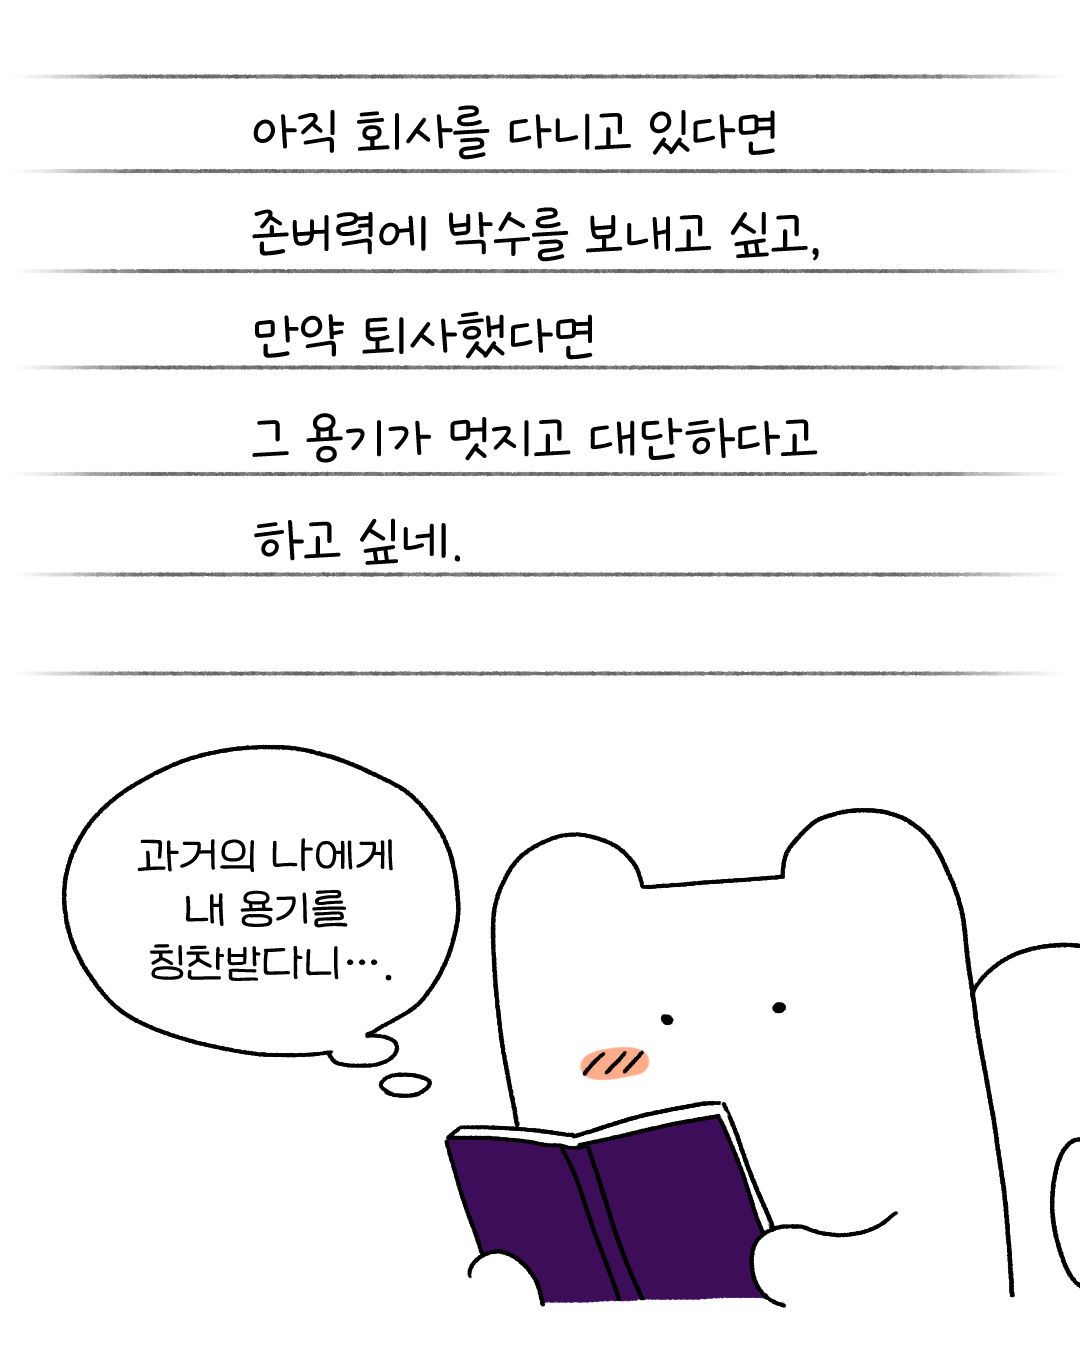 아직 회사를 다니고 있다면
존버력에 박수를 보내고 싶고,
만약 퇴사했다면
그 용기가 멋지고 대단하다고
하고 싶네.
과거의 나에게
내 용기를
칭찬받다니….